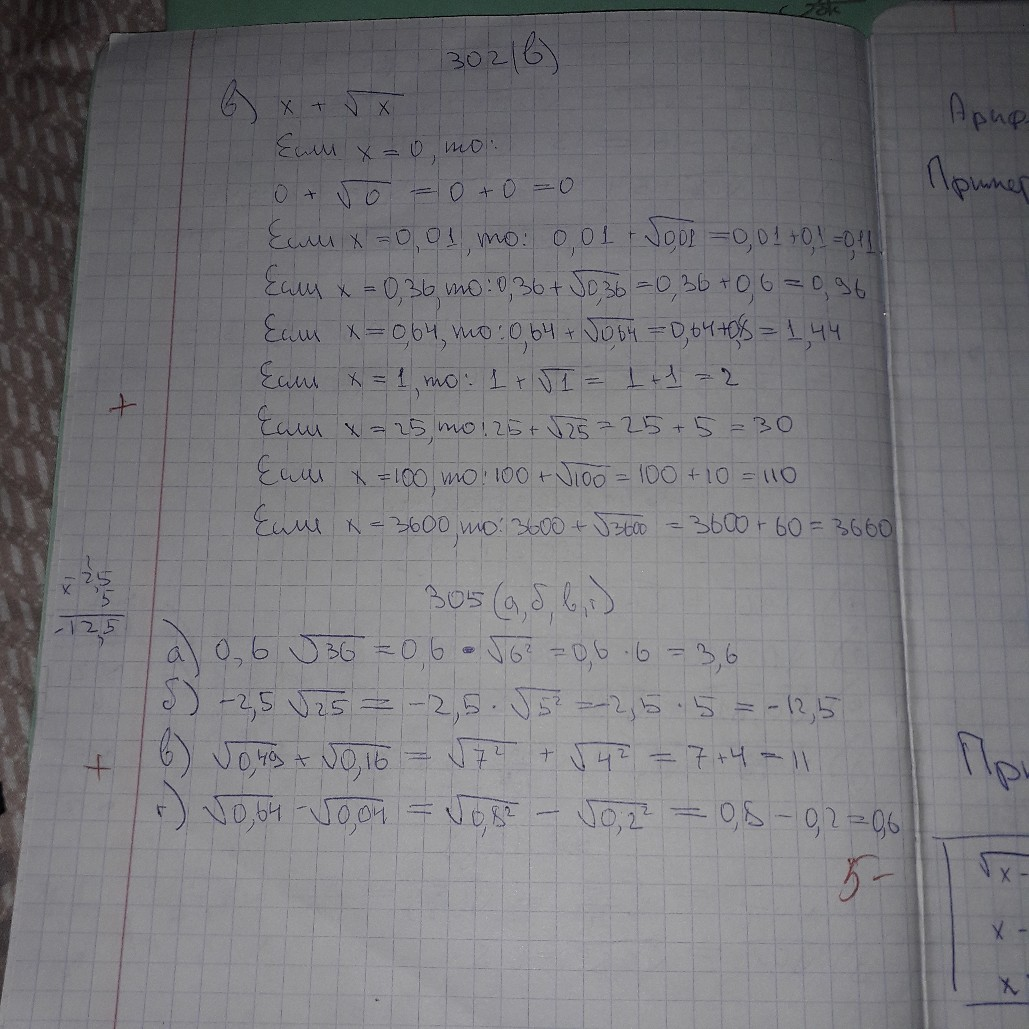 302(в)
в) x + √x
Если x = 0, то:
0 + √0 = 0 + 0 = 0
Если x = 0,01, то: 0,01 + √0,01 = 0,01 + 0,1 = 0,11
Если x = 0,36, то: 0,36 + √0,36 = 0,36 + 0,6 = 0,96
Если x = 0,64, то: 0,64 + √0,64 = 0,64 + 0,8 = 1,44
Если x = 1, то: 1 + √1 = 1 + 1 = 2
+
Если x = 25, то: 25 + √25 = 25 + 5 = 30
Если x = 100, то: 100 + √100 = 100 + 10 = 110
Если x = 3600, то: 3600 + √3600 = 3600 + 60 = 3660
-2,5
x 5
-12,5
305 (а, б, в, г)
а) 0,6 √36 = 0,6 · √6² = 0,6 · 6 = 3,6
б) -2,5 √25 = -2,5 · √5² = -2,5 · 5 = -12,5
+
в) √0,49 + √0,16 = √7² + √4² = 7 + 4 = 11
г) √0,64 - √0,04 = √0,8² - √0,2² = 0,8 - 0,2 = 0,6
5-
Ариф
Пример
При
√x -
x -
x